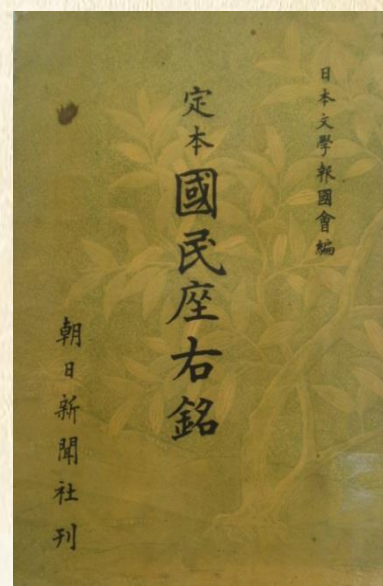 日本文學報國會編
定本 國民座右銘
朝日新聞社刊